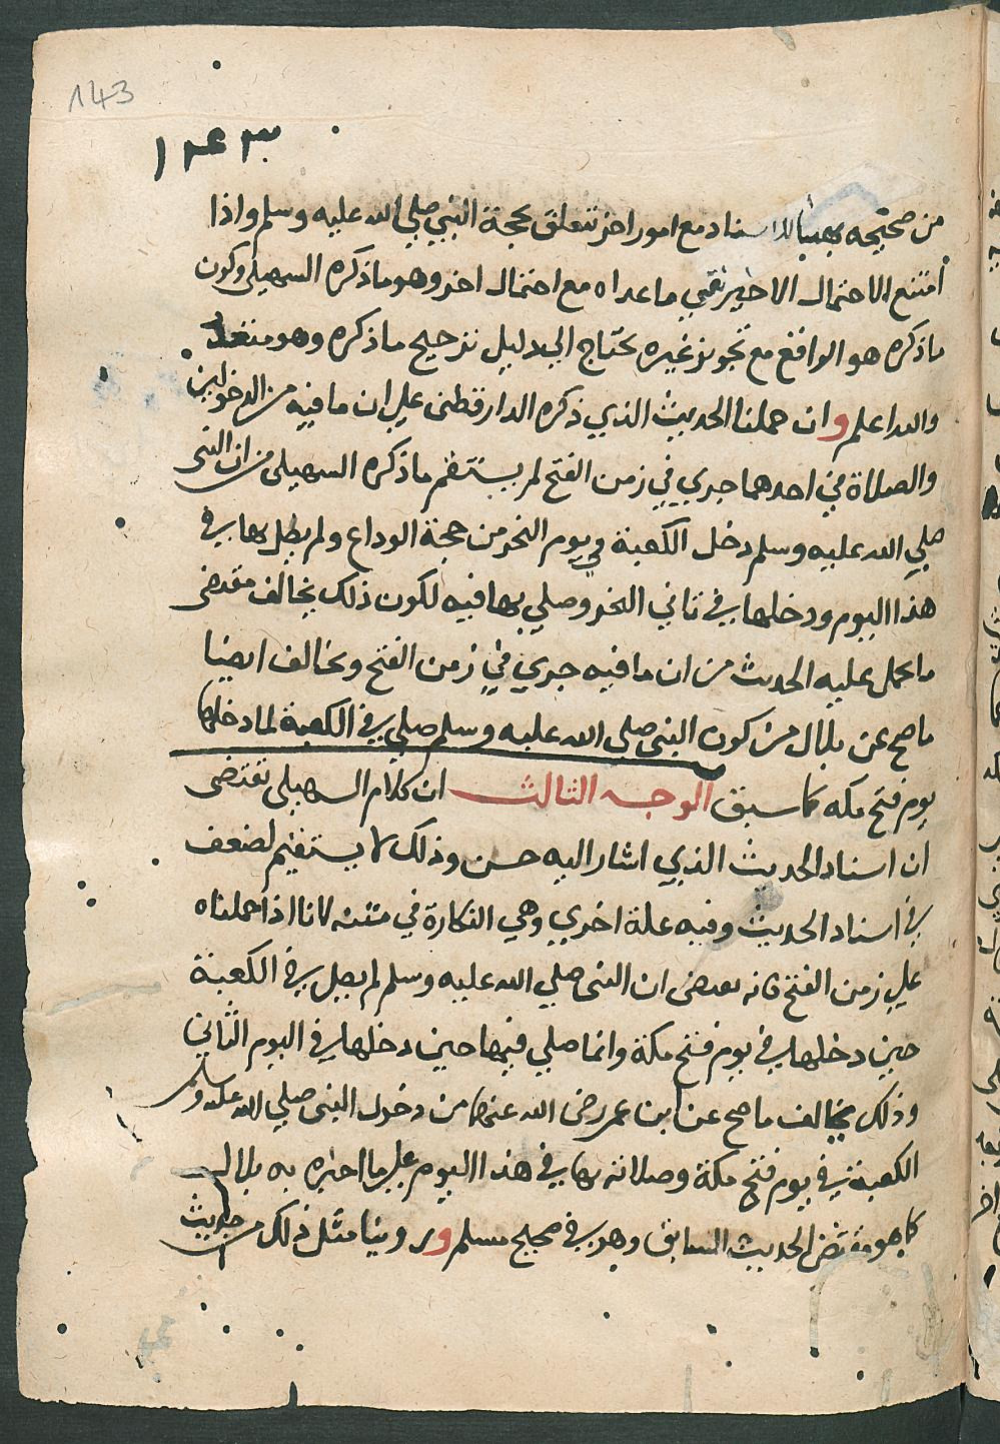 143
١٤٣
من صحيحه بهذا الاسناد مع امور اخر تتعلق بحجة النبي صلي الله عليه وسلم واذا
امتنع الاحتمال الاخير بقي ما عداه مع احتمال اخر وهو ما ذكره السهيلي وكون
ما ذكره هو الواقع مع تجويز غيره يحتاج الي دليل ترجيح ما ذكره وهو متعذر
والله اعلم وان حملنا الحديث الذي ذكره الدارقطنى علي ان ما فيه من الدخولين
والصلاة في احدهما جري في زمن الفتح لم يستقم ما ذكره السهيلى من ان النبى
صلي الله عليه وسلم دخل الكعبة في يوم النحر من حجة الوداع ولم يصل بها في
هذا اليوم ودخلها في ثاني النحر وصلي بها فيه لكون ذلك يخالف مقتضى
ما يحمل عليه الحديث من ان ما فيه جري في زمن الفتح ويخالف ايضا
ما صح عن بلال من كون النبى صلي الله عليه وسلم صلي في الكعبة لما دخلها
يوم فتح مكه كما سبق الوجه الثالث ان كلام السهيلى يقتضى
ان اسناد الحديث الذي اشار اليه حسن وذلك لا يستقيم لضعف
في اسناد الحديث وفيه علة اخري وهي النكارة في متنه لانا اذا حملناه
علي زمن الفتح فانه يقتضى ان النبى صلي الله عليه وسلم لم يصل في الكعبة
حين دخلها في يوم فتح مكة وانما صلي فيها حين دخلها في اليوم الثاني
وذلك يخالف ما صح عن ابن عمر رضى الله عنهما من دخول النبى صلي الله عليه وسلم
الكعبة في يوم فتح مكة وصلاته بها في هذا اليوم علي ما اخبره به بلال
كما هو مقتضى الحديث السابق وهو في صحيح مسلم وروينا مثل ذلك من حديث